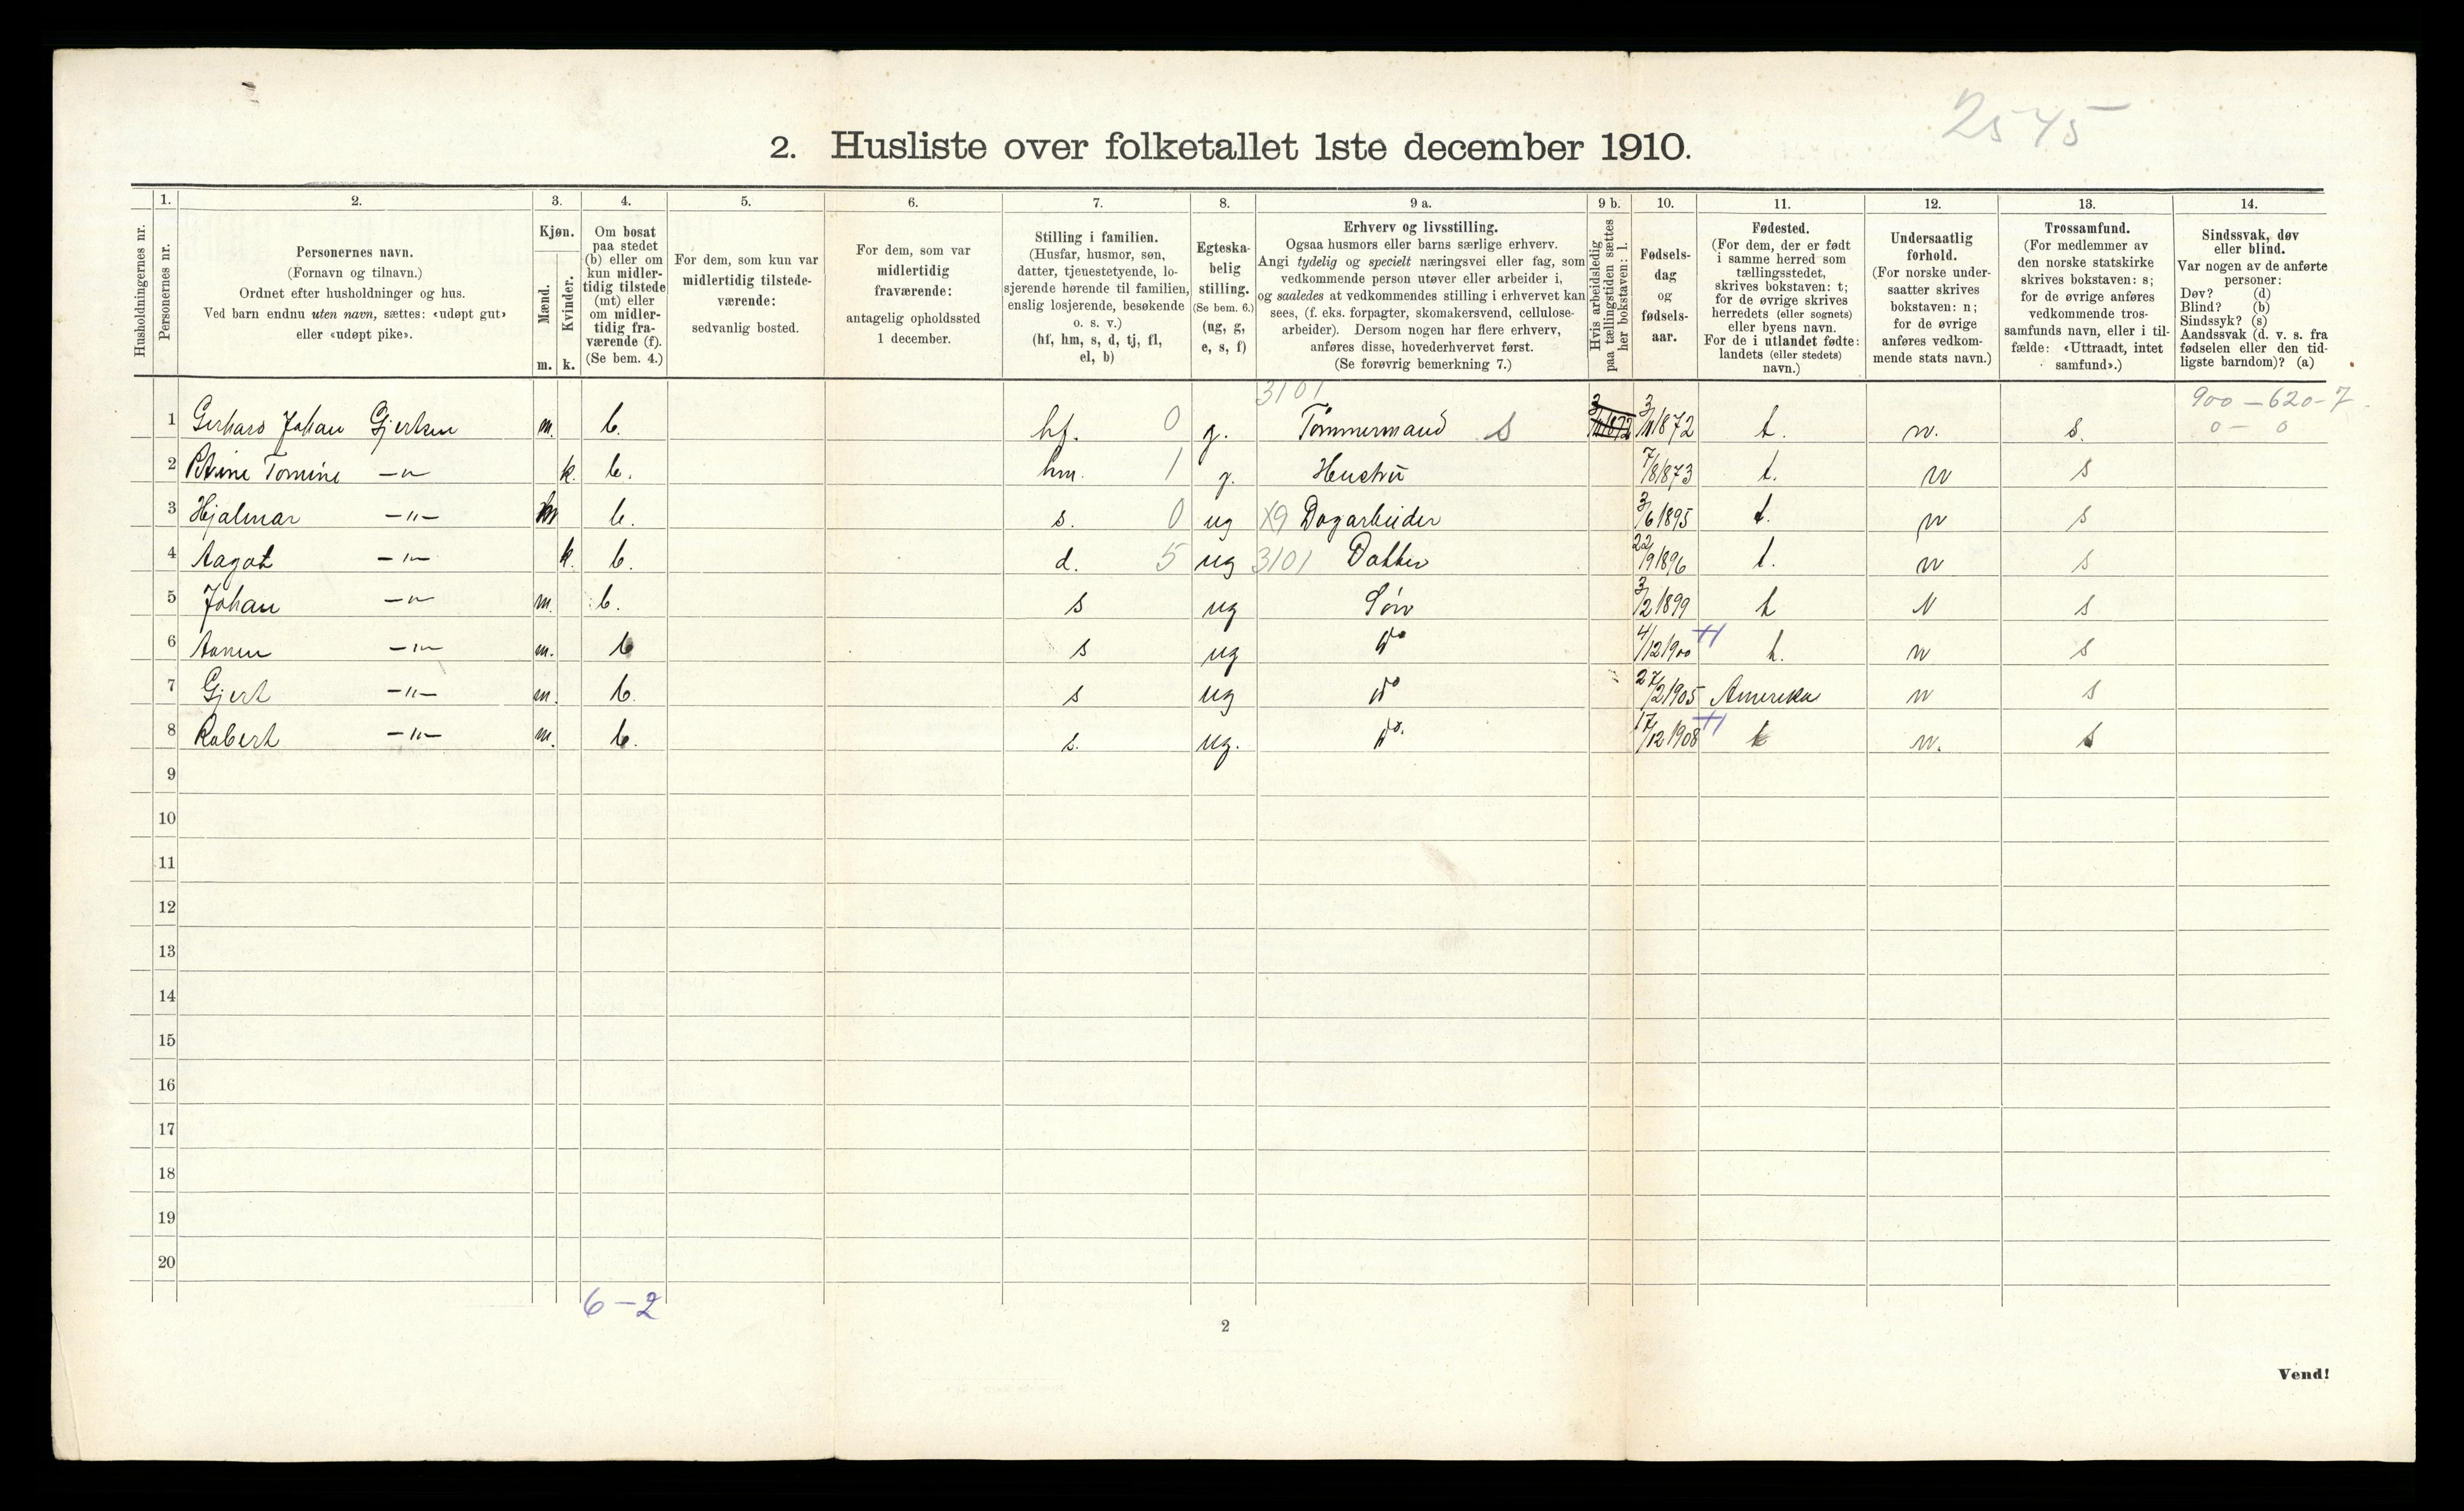 2545
2. Husliste over folketallet 1ste december 1910.
1. 2. 3. 4. 5. 6. 7. 8. 9 a. 9 b. 10. 11. 12. 13. 14.
Husholdningernes nr.
Personernes nr.
Personernes navn.
(Fornavn og tilnavn.)
Ordnet efter husholdninger og hus.
Ved barn endnu uten navn, sættes: «udøpt gut»
eller «udøpt pike».
Kjøn.
Mænd.
m.
Kvinder.
k.
Om bosat
paa stedet
(b) eller om
kun midler-
tidig tilstede
(mt) eller
om midler-
tidig fra-
værende (f).
(Se bem. 4.)
For dem, som kun var
midlertidig tilstede-
værende:
sedvanlig bosted.
For dem, som var
midlertidig
fraværende:
antagelig opholdssted
1 december.
Stilling i familien.
(Husfar, husmor, søn,
datter, tjenestetyende, lo-
sjerende hørende til familien,
enslig losjerende, besøkende
o. s. v.)
(hf, hm, s, d, tj, fl,
el, b)
Egteska-
belig
stilling.
(Se bem. 6.)
(ug, g,
e, s, f)
Erhverv og livsstilling.
Ogsaa husmors eller barns særlige erhverv.
Angi tydelig og specielt næringsvei eller fag, som
vedkommende person utøver eller arbeider i,
og saaledes at vedkommendes stilling i erhvervet kan
sees, (f. eks. forpagter, skomakersvend, cellulose-
arbeider). Dersom nogen har flere erhverv,
anføres disse, hovederhvervet først.
(Se forøvrig bemerkning 7.)
Hvis arbeidsledig
paa tællingstiden sættes
her bokstaven: l.
Fødsels-
dag
og
fødsels-
aar.
Fødested.
(For dem, der er født
i samme herred som
tællingsstedet,
skrives bokstaven: t;
for de øvrige skrives
herredets (eller sognets)
eller byens navn.
For de i utlandet fødte:
landets (eller stedets)
navn.)
Undersaatlig
forhold.
(For norske under-
saatter skrives
bokstaven: n;
for de øvrige
anføres vedkom-
mende stats navn.)
Trossamfund.
(For medlemmer av
den norske statskirke
skrives bokstaven: s;
for de øvrige anføres
vedkommende tros-
samfunds navn, eller i til-
fælde: «Uttraadt, intet
samfund».)
Sindssvak, døv
eller blind.
Var nogen av de anførte
personer:
Døv? (d)
Blind? (b)
Sindssyk? (s)
Aandssvak (d. v. s. fra
fødselen eller den tid-
ligste barndom)? (a)
3101
900 - 620 - 7
0 - 0
1 Gerhard Johan Gjertsen m. b. hf. 0 g. Tømmermand S 3/11 1872 3/11 1872 t. n. s.
2 Petrine Tomine —"— k. b. hm. 1 g. Hustru 7/8 1873 t. n s
3 Hjalmar —"— m b. s. 0 ug X9 Dagarbeider 3/6 1895 t. n s
4 Aagot —"— k. b. d. 5 ug 3101 Datter 22/9 1896 t. n s
5 Johan —"— m. b. s ug Søn 3/2 1899 t N s
6 Aanen —"— m. b s ug do 4/12 1900 t. n s
7 Gjert —"— m. b. s ug do 27/2 1905 Amerika n s
8 Robert —"— m. b. s. ug. do. 17/12 1908 t n. s
9
10
11
12
13
14
15
16
17
18
19
20
6 - 2
2
Vend!